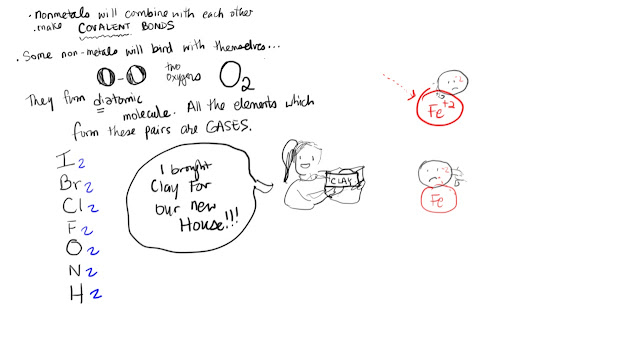 . nonmetals will combine with each other
. make COVALENT BONDS
. Some non-metals will bind with themselves...
O-O two oxygens O2
They form diatomic molecule. All the elements which
form these pairs are GASES.
I2
Br2
Cl2
F2
O2
N2
H2
I brought
Clay For
our new
House!!!
CLAY
-2
Fe+2
-2
Fe